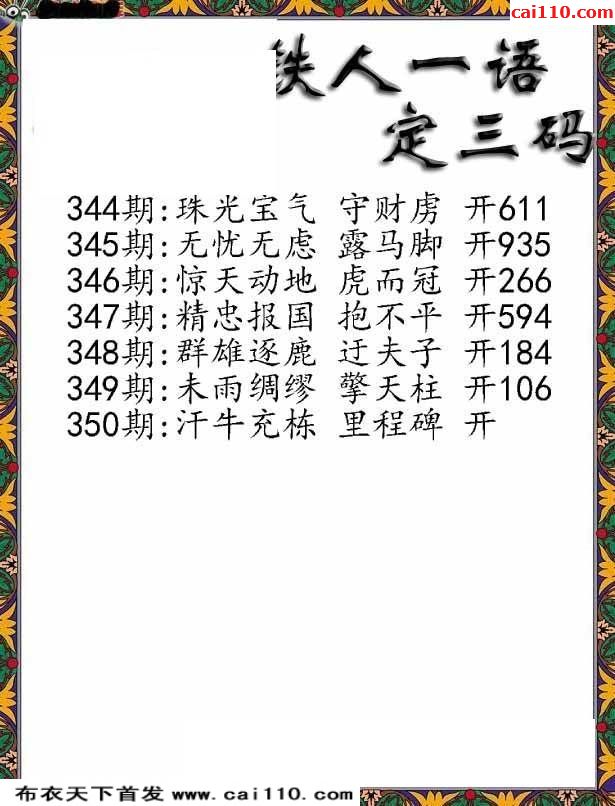 cai110.com
铁人一语
定三码
344期:珠光宝气 守财虏 开611
345期:无忧无虑 露马脚 开935
346期:惊天动地 虎而冠 开266
347期:精忠报国 抱不平 开594
348期:群雄逐鹿 迂夫子 开184
349期:未雨绸缪 擎天柱 开106
350期:汗牛充栋 里程碑 开
布衣天下首发 www.cai110.com